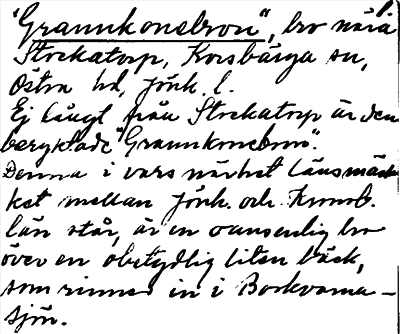 "Grannkonebron", bro nära
Stockatorp, Korsbärga sn,
Östra hd, Jönk. l.
Ej långt från Stockatorp är den
beryktade "Grannkonebron".
Denna i vars närhet länsmär-
ket mellan Jönk. och Kronob.
län står, är en oansenlig bro
över en obetydlig liten bäck,
som rinner in i Borkvarna-
sjön.